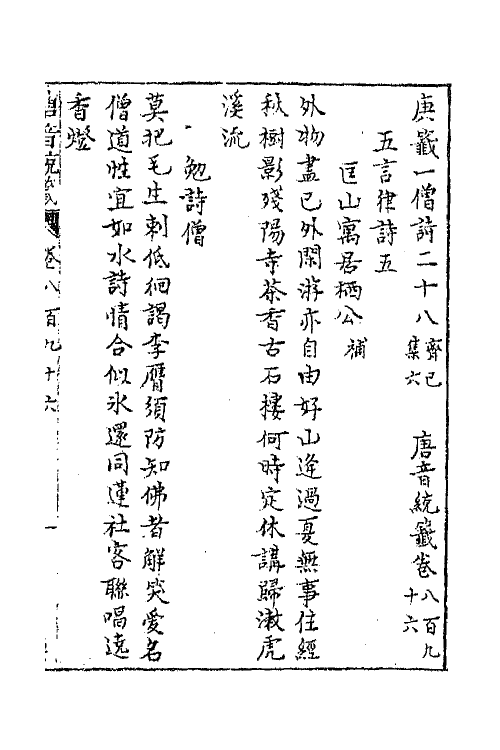 庚籤一僧詩二十八齊已集六　唐音統籤卷八百九十六
五言律詩五
匡山寓居栖公補
外物盡已外閑游亦自由好山逢過夏無事住經
秋樹影殘陽寺茶香古石樓何時定休講歸漱虎
溪流
勉詩僧
莫把毛生刺低徊謁李膺須防知佛者解笑愛名
僧道性宜如水詩情合似氷還同蓮社客聯唱遶
香燈
唐音統籤卷八百九十六　一